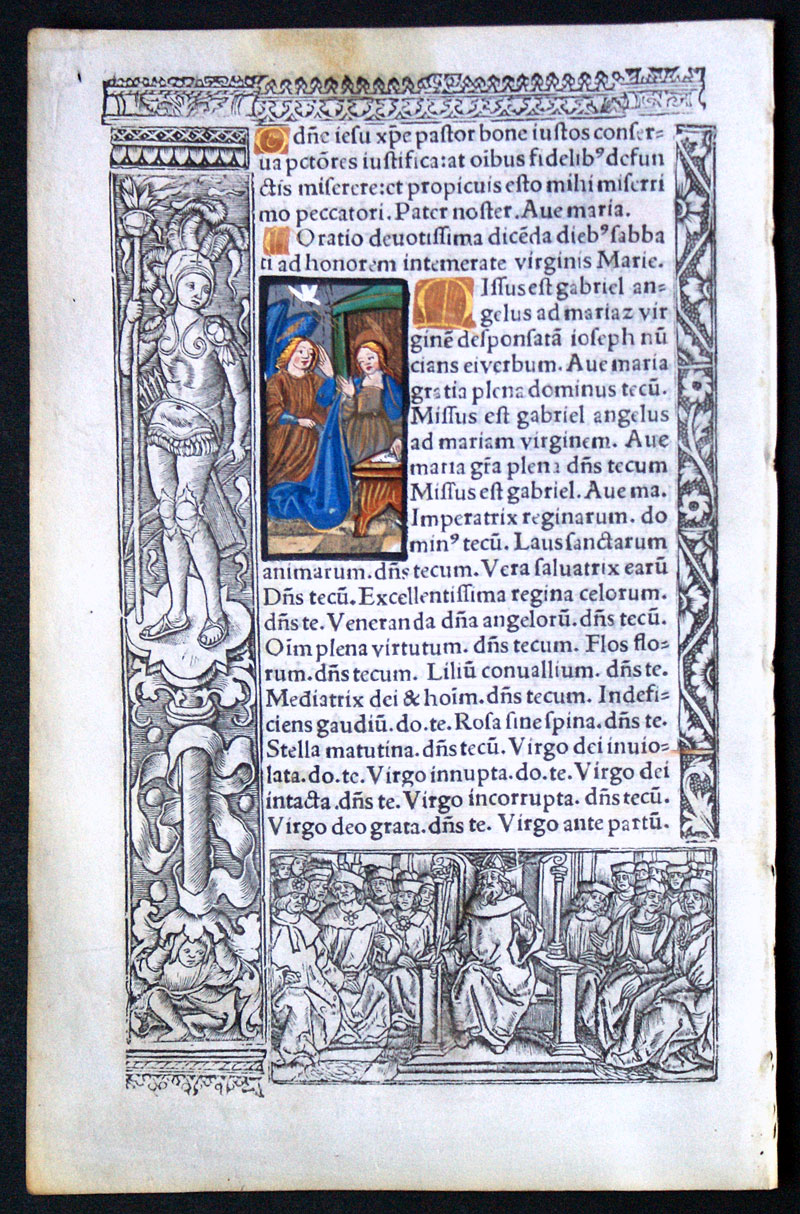 O dñe iesu xp̃e pastor bone iustos conser=
ua pctõres iustifica:at oibus fidelibꝰ defun
ctis miserere:et propicuis esto mihi miserri
mo peccatori. Pater noster. Aue maria.
Oratio deuotissima dicẽda diebꝰ sabba
ti ad honorem intemerate virginis Marie.
MIssus est gabriel an=
gelus ad mariaz vir
ginẽ desponsatã ioseph nũ
cians ei verbum. Aue maria
gratia plena dominus tecũ.
Missus est gabriel angelus
ad mariam virginem. Aue
maria gr̃a plena dñs tecum
Missus est gabriel. Aue ma.
Imperatrix reginarum. do
minꝰ tecũ. Laus sanctarum
animarum. dñs tecum. Vera saluatrix earũ
Dñs tecũ. Excellentissima regina celorum.
dñs te. Veneranda dña angelorũ. dñs tecũ.
Oĩm plena virtutum. dñs tecum. Flos flo=
rum. dñs tecum. Liliũ conuallium. dñs te.
Mediatrix dei & hoĩm. dñs tecum. Indefi=
ciens gaudiũ. do. te. Rosa sine spina. dñs te.
Stella matutina. dñs tecũ. Virgo dei inuio=
lata. do. te. Virgo innupta. do. te. Virgo dei
intacta. dñs te. Virgo incorrupta. dñs tecũ.
Virgo deo grata. dñs te. Virgo ante partũ.